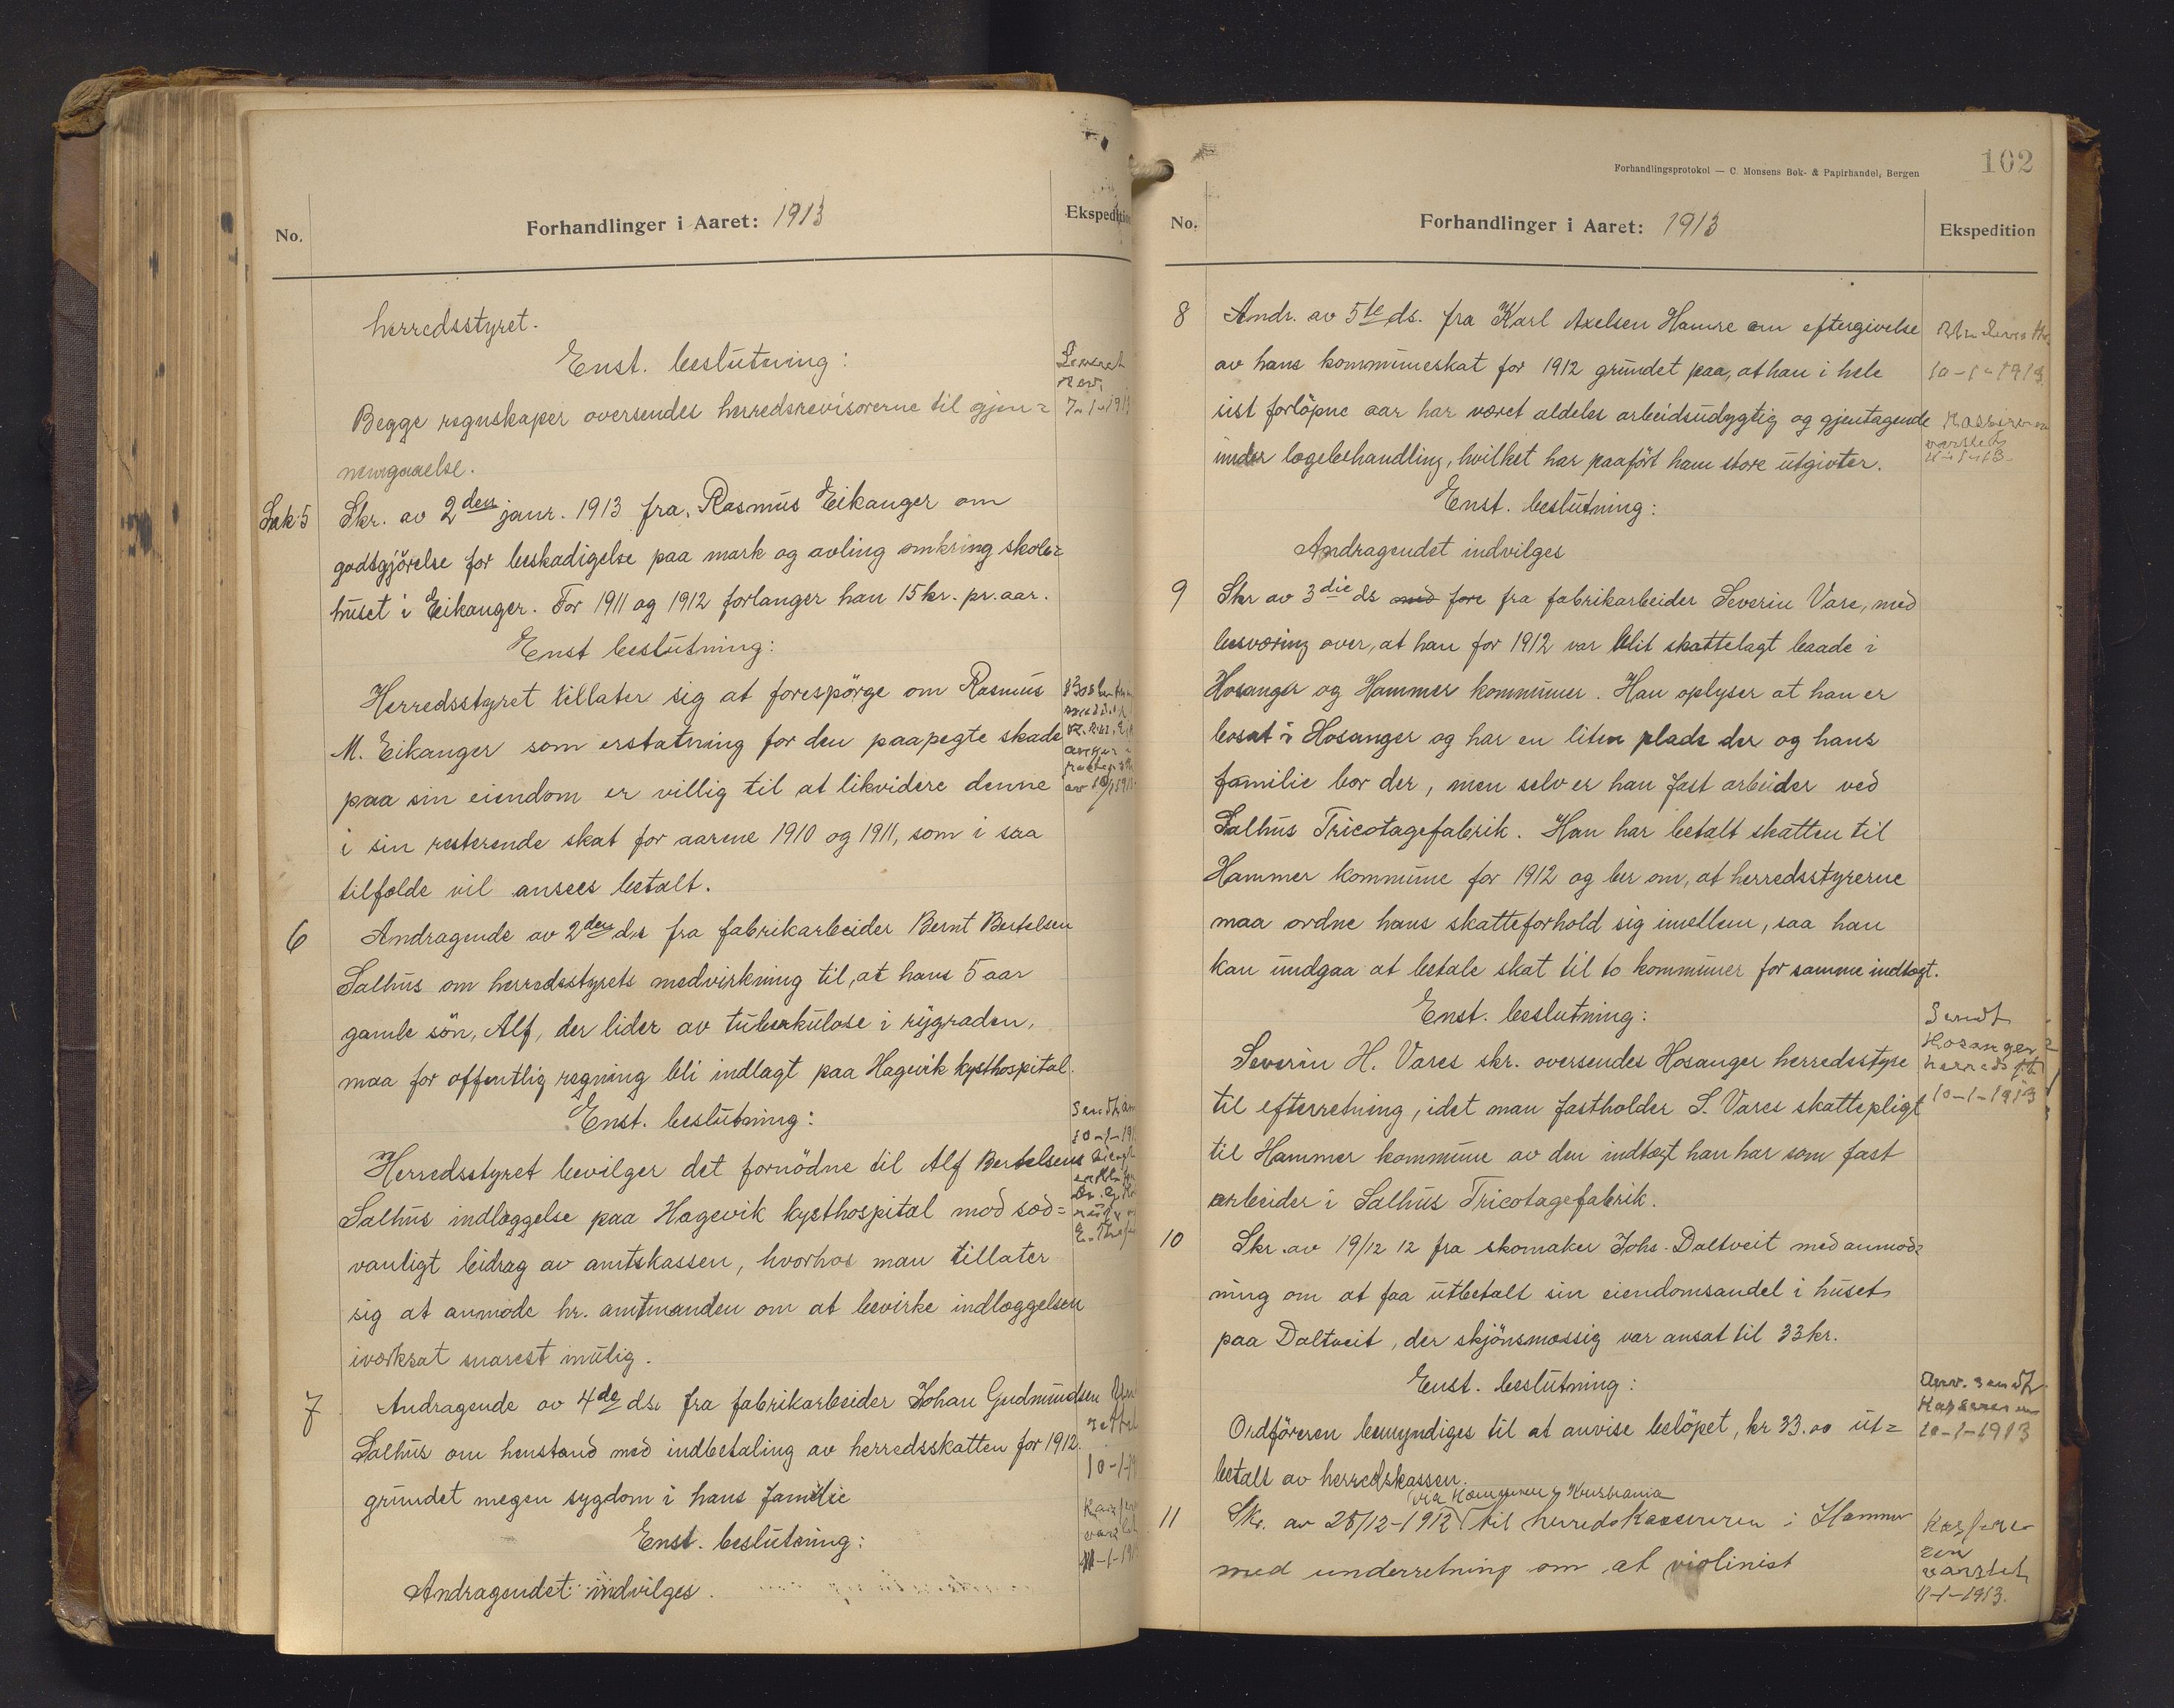 No.
Forhandlinger i Aaret: 1913
Ekspedition
herredsstyret.
Enst. beslutning:
Begge regnskaper oversendes herredsrevisorerne til gjen=
nemgaaelse.
7-1-1913
Sak 5
Skr. av 2den janr. 1913 fra Rasmus Eikanger om
godtgjörelse for beskadigelse paa mark og avling omkring skole=
huset i Eikanger. For 1911 og 1912 forlanger han 15 kr. pr. aar.
Enst beslutning:
Herredsstyret tillater sig at forespörge om Rasmus
M. Eikanger som erstatning for den paapegte skade
paa sin eiendom er villig til at likvidere denne
i sin resterende skat for aarene 1910 og 1911, som i saa
tilfælde vil ansees betalt.
6
Andragende av 2den ds fra fabrikarbeider Bernt Bertelsen
Salhus om herredsstyrets medvirkning til, at hans 5 aar
gamle sön, Alf, der lider av tuberkulose i rygraden,
maa for offentlig regning bli indlagt paa Hagevik kysthospital.
Enst. beslutning:
Herredsstyret bevilger det fornödne til Alf Bertelsens
Salhus indlæggelse paa Hagevik kysthospital mod sæd=
vanligt bidrag av amtskassen, hvorhos man tillater
sig at anmode hr. amtmanden om at bevirke indlæggelsen
iverksat snarest mulig.
7
Andragende av 4de ds. fra fabrikarbeider Johan Gudmundsen
Salhus om henstand med indbetaling av herredsskatten for 1912.
grundet megen sygdom i hans familie
Enst. beslutning:
Andragendet indvilges.
Forhandlingsprotokol — C. Monsens Bok- & Papirhandel, Bergen
102
No.
Forhandlinger i Aaret: 1913
Ekspedition
8
Andr. av 5te ds. fra Karl Axelsen Hamre om eftergivelse
av hans kommuneskat for 1912 grundet paa, at han i hele
sist forlöpne aar har været aldeles arbeidsudygtig og gjentagende
under lægebehandling, hvilket har paafört ham store utgivter.
10-1-1913
Kassereren
varslet
11-1-13
Enst. beslutning:
Andragendet indvilges
9
Skr av 3die ds med fore fra fabrikarbeider Severin Vare, med
besværing over, at han for 1912 var blit skattelagt baade i
Hosanger og Hammer kommuner. Han oplyser at han er
bosat i Hosanger og har en liten plads der og hans
familie bor der, men selv er han fast arbeider ved
Salhus Tricotagefabrik. Han har betalt skatten til
Hammer kommune for 1912 og ber om, at herredsstyrerne
maa ordne hans skatteforhold sig imellem, saa han
kan undgaa at betale skat til to kommuner for samme indtægt.
Enst. beslutning:
Severin H. Vares skr. oversendes Hosanger herredsstyre
til efterretning, idet man fastholder S. Vares skattepligt
til Hammer kommune av den indtægt han har som fast
arbeider i Salhus Tricotagefabrik.
Sendt
Hosanger
herredsst
10-1-1913
10
Skr. av 19/12 12 fra skomaker Johs. Daltveit med anmod=
ning om at faa utbetalt sin eiendomsandel i huset
paa Daltveit, der skjönsmæssig var ansat til 33 kr.
Enst. beslutning:
Ordföreren bemyndiges til at anvise belöpet, kr 33.00 ut=
betalt av herredskassen.
Anv. sendt
Kassereren
10-1-1913
11
via Kæmneren i Kristiania
Skr. av 28/12-1912 til herredskassereren i Hammer
med underretning om at violinist
Kasserer
en
varslet
11-1-1913.